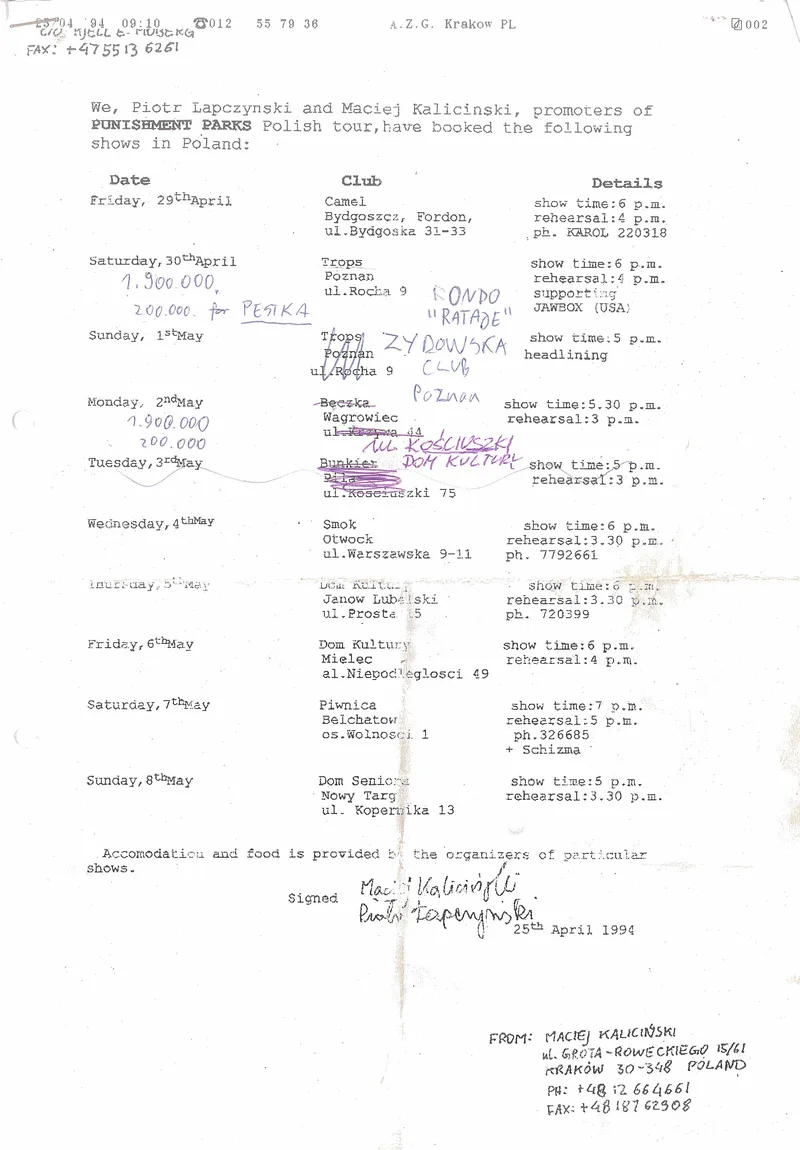 25/04 '94 09:10 ☎012 55 79 36 A.Z.G. Krakow PL 002
FAX: +47 55 13 6261
We, Piotr Lapczynski and Maciej Kalicinski, promoters of
PUNISHMENT PARKS Polish tour,have booked the following
shows in Poland:
Date Club Details
Friday, 29thApril Camel show time:6 p.m.
Bydgoszcz, Fordon, rehearsal:4 p.m.
ul.Bydgoska 31-33 ph. KAROL 220318
Saturday,30thApril Trops show time:6 p.m.
1.900.000, Poznan rehearsal:4 p.m.
ul.Rocha 9 RONDO supporting
200.000. for PESTKA "RATAJE" JAWBOX (USA)
Sunday, 1stMay Trops ZYDOWSKA show time:5 p.m.
Poznan headlining
ul.Rocha 9 CLUB
POZNAN
Monday, 2ndMay Beczka show time:5.30 p.m.
1.900.000 Wagrowiec rehearsal:3 p.m.
200.000 ul. 44
ul. KOŚCIUSZKI
Tuesday,3rdMay Bunkier DOM KULTURY show time:5 p.m.
Pila rehearsal:3 p.m.
ul.Kosciuszki 75
Wednesday,4thMay Smok show time:6 p.m.
Otwock rehearsal:3.30 p.m.
ul.Warszawska 9-11 ph. 7792661
Thursday,5thMay Dom Kultury show time:6 p.m.
Janow Lubelski rehearsal:3.30 p.m.
ul.Prosta 15 ph. 720399
Friday,6thMay Dom Kultury show time:6 p.m.
Mielec rehearsal:4 p.m.
al.Niepodleglosci 49
Saturday,7thMay Piwnica show time:7 p.m.
Belchatow rehearsal:5 p.m.
os.Wolnosci 1 ph.326685
+ Schizma
Sunday,8thMay Dom Seniora show time:5 p.m.
Nowy Targ rehearsal:3.30 p.m.
ul. Kopernika 13
Accomodation and food is provided by the organizers of particular
shows.
Signed Maciej Kaliciński
Piotr Łapczyński
25th April 1994
FROM: MACIEJ KALICIŃSKI
ul. GROTA-ROWECKIEGO 15/61
KRAKÓW 30-348 POLAND
PH: +48 12 664661
FAX: +48 187 62308